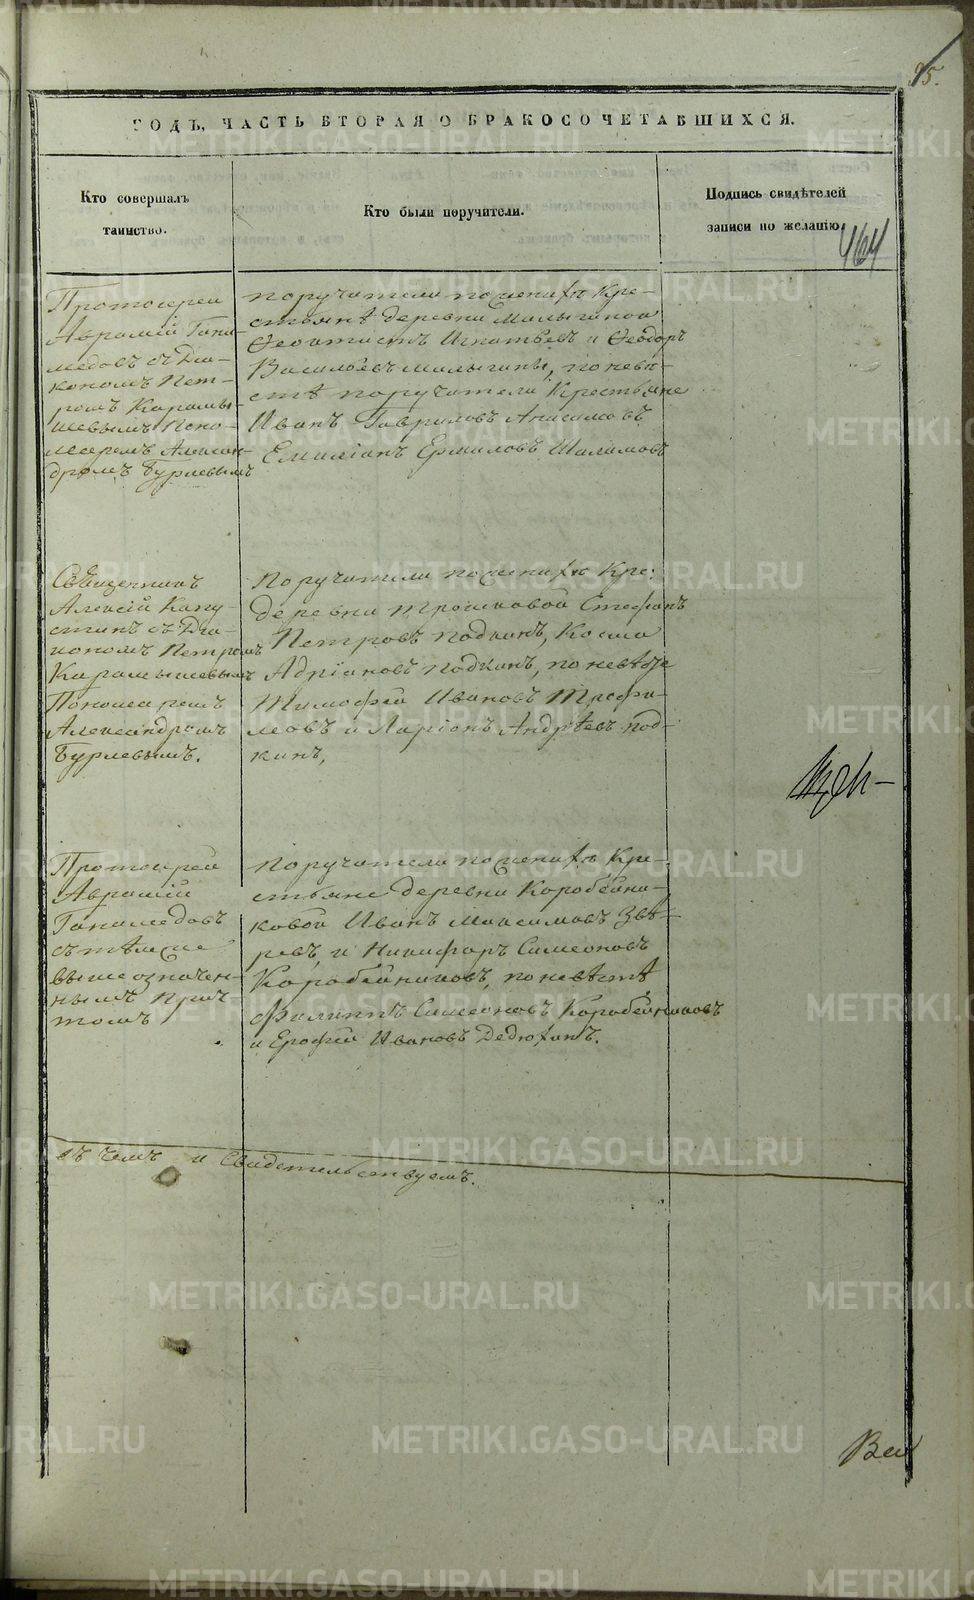 95.
ГОДЪ, ЧАСТЬ ВТОРАЯ О БРАКОСОЧЕТАВШИХСЯ.
Кто совершалъ
таинство.
Кто были поручители.
Подпись свидѣтелей
записи по желанію.
464
Протоіерей
Аврамій Гани-
медовъ съ Діа-
кономъ Пет-
ромъ Карамы-
шевымъ Поно-
маремъ Алексан-
дромъ Бурлевымъ
поручители по женихѣ Кре-
стьянѣ деревни Малыгиной
Ѳеоктистъ Игнатьевъ и Ѳеодоръ
Васильевъ малыгины, по невѣ-
стѣ поручители Крестьяне
Иванъ Гавриловъ Анисимовъ
Емиліанъ Ермиловъ Шалимовъ
Священникъ
Алексій Капу-
стинъ съ Діа-
кономъ Петромъ
Карамышевымъ
Пономаремъ
Александромъ
Бурлевымъ.
Поручители по женихѣ Кре:
деревни Трошковой Стефанъ
Петровъ подкинъ, Косма
Адріановъ Подкинъ, по невѣсте
Тимофей Ивановъ Трофи-
мовъ и Ларіонъ Андрѣевъ под-
кинъ,
Протоіерей
Аврамій
Ганимедовъ
съ тѣмже
вышеозначен-
нымъ прич
томъ
поручители по женихѣ Кре-
стьяне деревни Коробейни-
ковой Иванъ Максимовъ Звѣ-
ревъ, и Никифоръ Симеоновъ
Коробейниковъ, по невѣстѣ
Филиппъ Симеоновъ Коробейниковъ
и Ерофей Ивановъ Дедюхинъ.
въ чемъ и Свидетельствуемъ.
METRIKI.GASO-URAL.RU